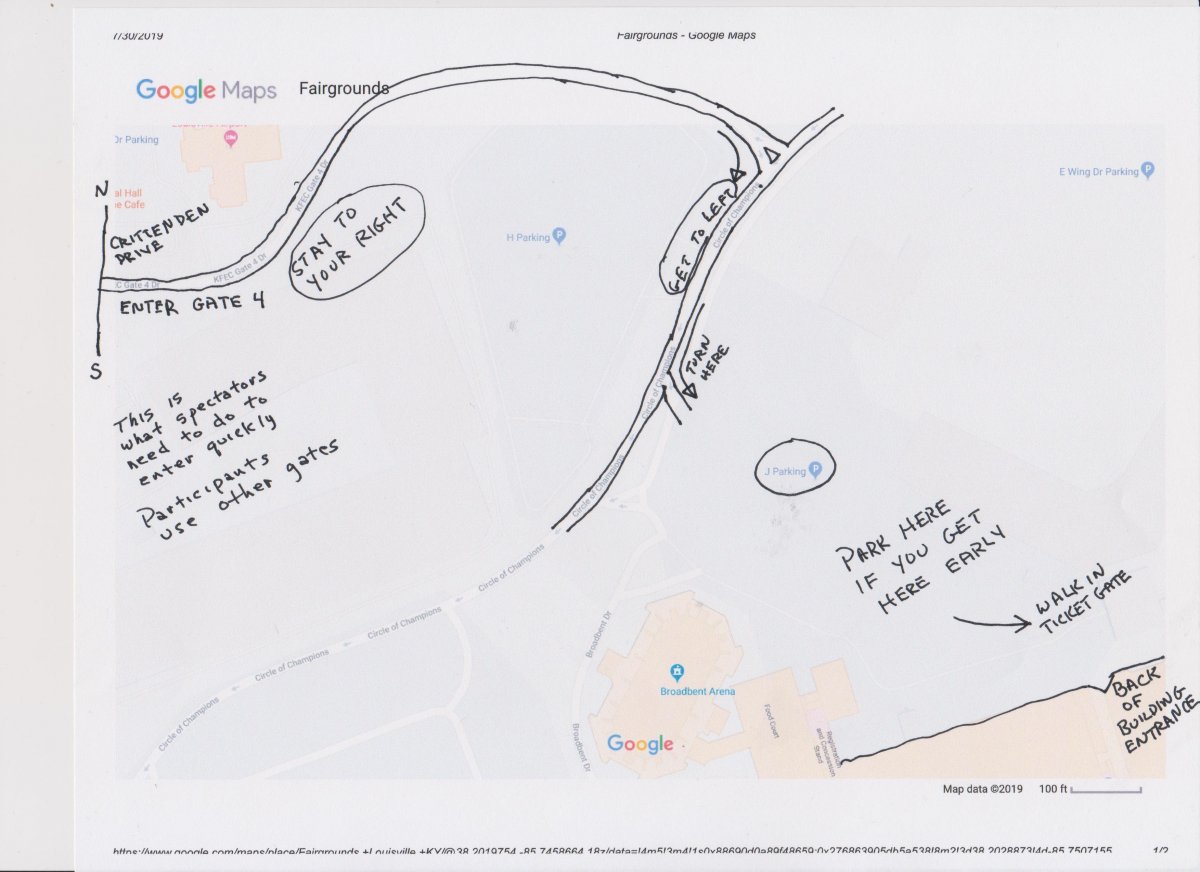 7/30/2019
Fairgrounds - Google Maps
Google Maps
Fairgrounds
Dr Parking
al Hall
e Cafe
N
CRITTENDEN
DRIVE
KFEC Gate 4 Dr
KFEC Gate 4 Dr
C Gate 4 Dr
ENTER GATE 4
S
STAY TO
YOUR RIGHT
H Parking
GET TO LEFT
Circle of Champions
E Wing Dr Parking
TURN
HERE
Circle of Champions
This is
what spectators
need to do to
enter quickly
Participants
use other gates
J Parking
Circle of Champions
PARK HERE
IF YOU GET
HERE EARLY
WALK IN
TICKET GATE
Circle of Champions
Circle of Champions
Circle of Champions
Circle of Champions
Broadbent Dr
Broadbent Arena
Broadbent Dr
Food Court
Registration
and Concession
Stand
BACK
OF
BUILDING
ENTRANCE
Google
Map data ©2019
100 ft
1/2